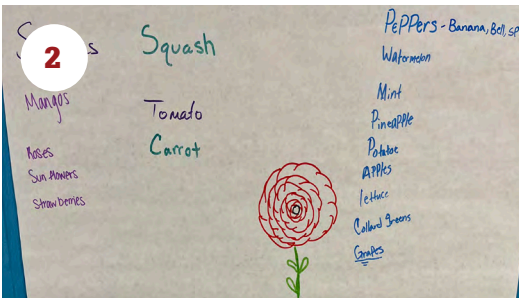 2
Mangos
Roses
Sunflowers
Strawberries
Squash
Tomato
Carrot
PePPers - Banana, Bell,
Watermelon
Mint
Pineapple
Potatoe
Apples
lettuce
Collard greens
Grapes